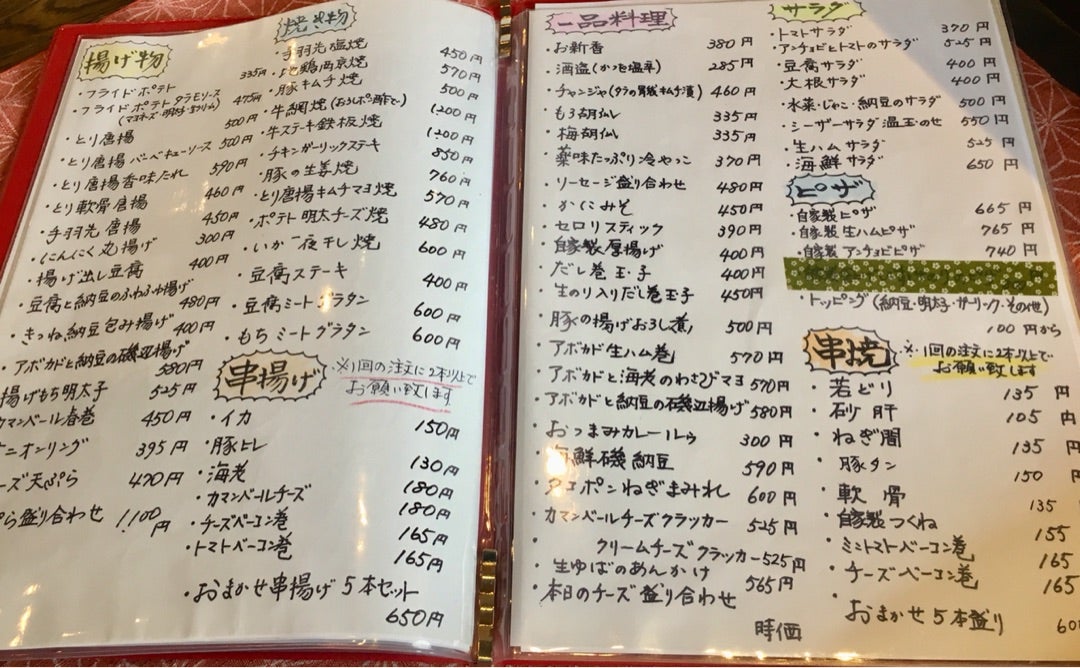 揚げ物
・フライドポテト 335円
・フライドポテト タラモソース 475円
(マヨネーズ・明太子・生クリーム)
・とり唐揚 500円
・とり唐揚 バーベキューソース 500円
・とり唐揚香味だれ 590円
・とり軟骨唐揚 460円
・手羽先唐揚 450円
・にんにく丸揚げ 300円
・揚げ出し豆腐 400円
・豆腐と納豆のふわふゆ揚げ 480円
・きつね納豆包み揚げ 400円
・アボカドと納豆の磯辺揚げ 580円
揚げもち明太子 525円
カマンベール春巻 450円
ニオンリング 395円
ーズ天ぷら 470円
ぷら盛り合わせ 1,100円
焼き物
・手羽先塩焼 450円
・地鶏南京焼 570円
・豚キムチ焼 500円
・牛網焼(おろしポン酢で) 1,200円
・牛ステーキ鉄板焼 1,200円
・チキンガーリックステーキ 850円
・豚の生姜焼 760円
・とり唐揚キムチマヨ焼 570円
・ポテト明太チーズ焼 480円
・いか一夜干し焼 600円
・豆腐ステーキ 400円
・豆腐ミートグラタン 600円
・もちミートグラタン 600円
串揚げ
※1回の注文に2本以上で
お願い致します
・イカ 150円
・豚ヒレ 130円
・海老 180円
・カマンベールチーズ 180円
・チーズベーコン巻 165円
・トマトベーコン巻 165円
・おまかせ串揚げ5本セット
650円
一品料理
・お新香 380円
・酒盗(かつを塩辛) 285円
・チャンジャ(タラの胃袋キムチ漬) 460円
・もろ胡瓜 335円
・梅胡瓜 335円
・薬味たっぷり冷やっこ 370円
・ソーセージ盛り合わせ 480円
・かにみそ 450円
・セロリスティック 390円
・自家製厚揚げ 400円
・だし巻玉子 400円
・生のり入りだし巻玉子 450円
・豚の揚げおろし煮 500円
・アボカド生ハム巻 570円
・アボカドと海老のわさびマヨ 570円
・アボカドと納豆の磯辺揚げ 580円
・おつまみカレールゥ 300円
・海鮮磯納豆 590円
・タコポンねぎまみれ 600円
・カマンベールチーズクラッカー 525円
・クリームチーズクラッカー 525円
・生ゆばのあんかけ 565円
・本日のチーズ盛り合わせ
時価
サラダ
・トマトサラダ 370円
・アンチョビとトマトのサラダ 525円
・豆腐サラダ 400円
・大根サラダ 400円
・水菜・じゃこ・納豆のサラダ 500円
・シーザーサラダ温玉のせ 550円
・生ハムサラダ 525円
・海鮮サラダ 650円
ピザ
・自家製ピザ 665円
・自家製生ハムピザ 765円
・自家製アンチョビピザ 740円
・トッピング(納豆・明太子・ガーリック・その他)
100円から
串焼
※1回の注文に2本以上で
お願い致します
・若どり 135円
・砂肝 105円
・ねぎ間 135円
・豚タン 150円
・軟骨 135
・自家製つくね 155
・ミニトマトベーコン巻 165
・チーズベーコン巻 165
・おまかせ5本盛り